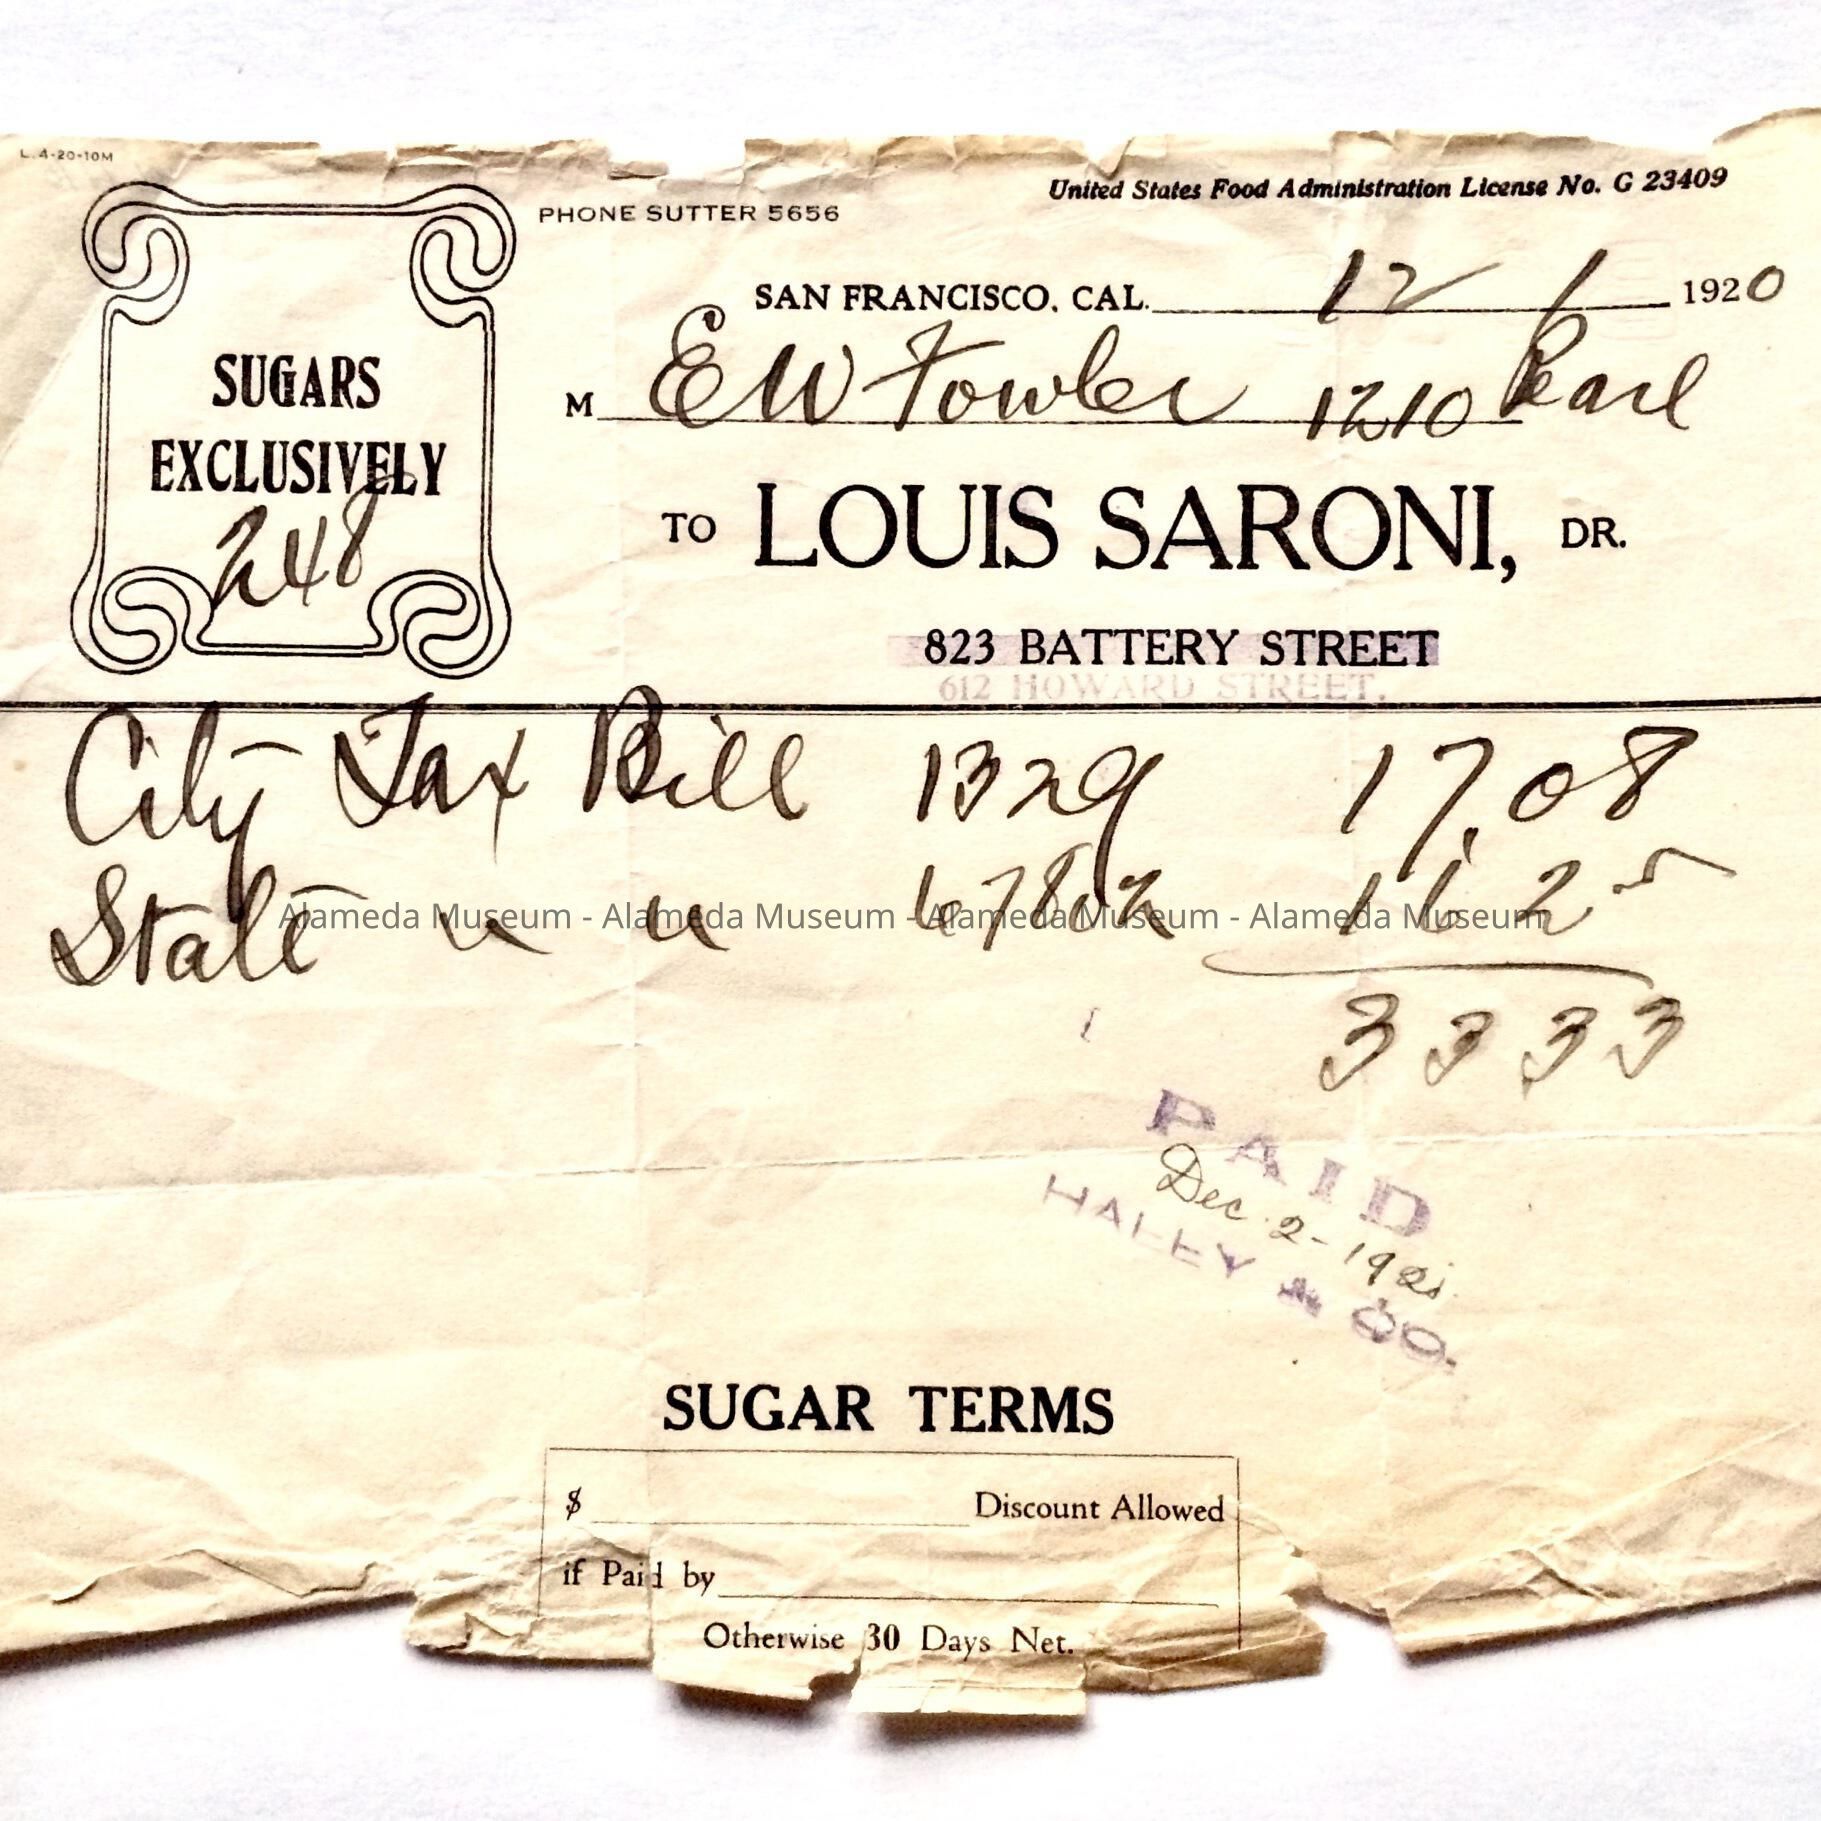 L. 4-20-10M
United States Food Administration License No. G 23409
PHONE SUTTER 5656
SAN FRANCISCO, CAL. 12 / 1 1920
M E W Fowler 1210 Pearl
SUGARS
EXCLUSIVELY
248
TO LOUIS SARONI, DR.
823 BATTERY STREET
612 HOWARD STREET.
City Tax Bill 1329 17.08
State " " 16 25
Alameda Museum - Alameda Museum - Alameda Museum - Alameda Museum
33 33
PAID
Dec. 2 - 192
HALEY & CO.
SUGAR TERMS
$ Discount Allowed
if Paid by
Otherwise 30 Days Net.